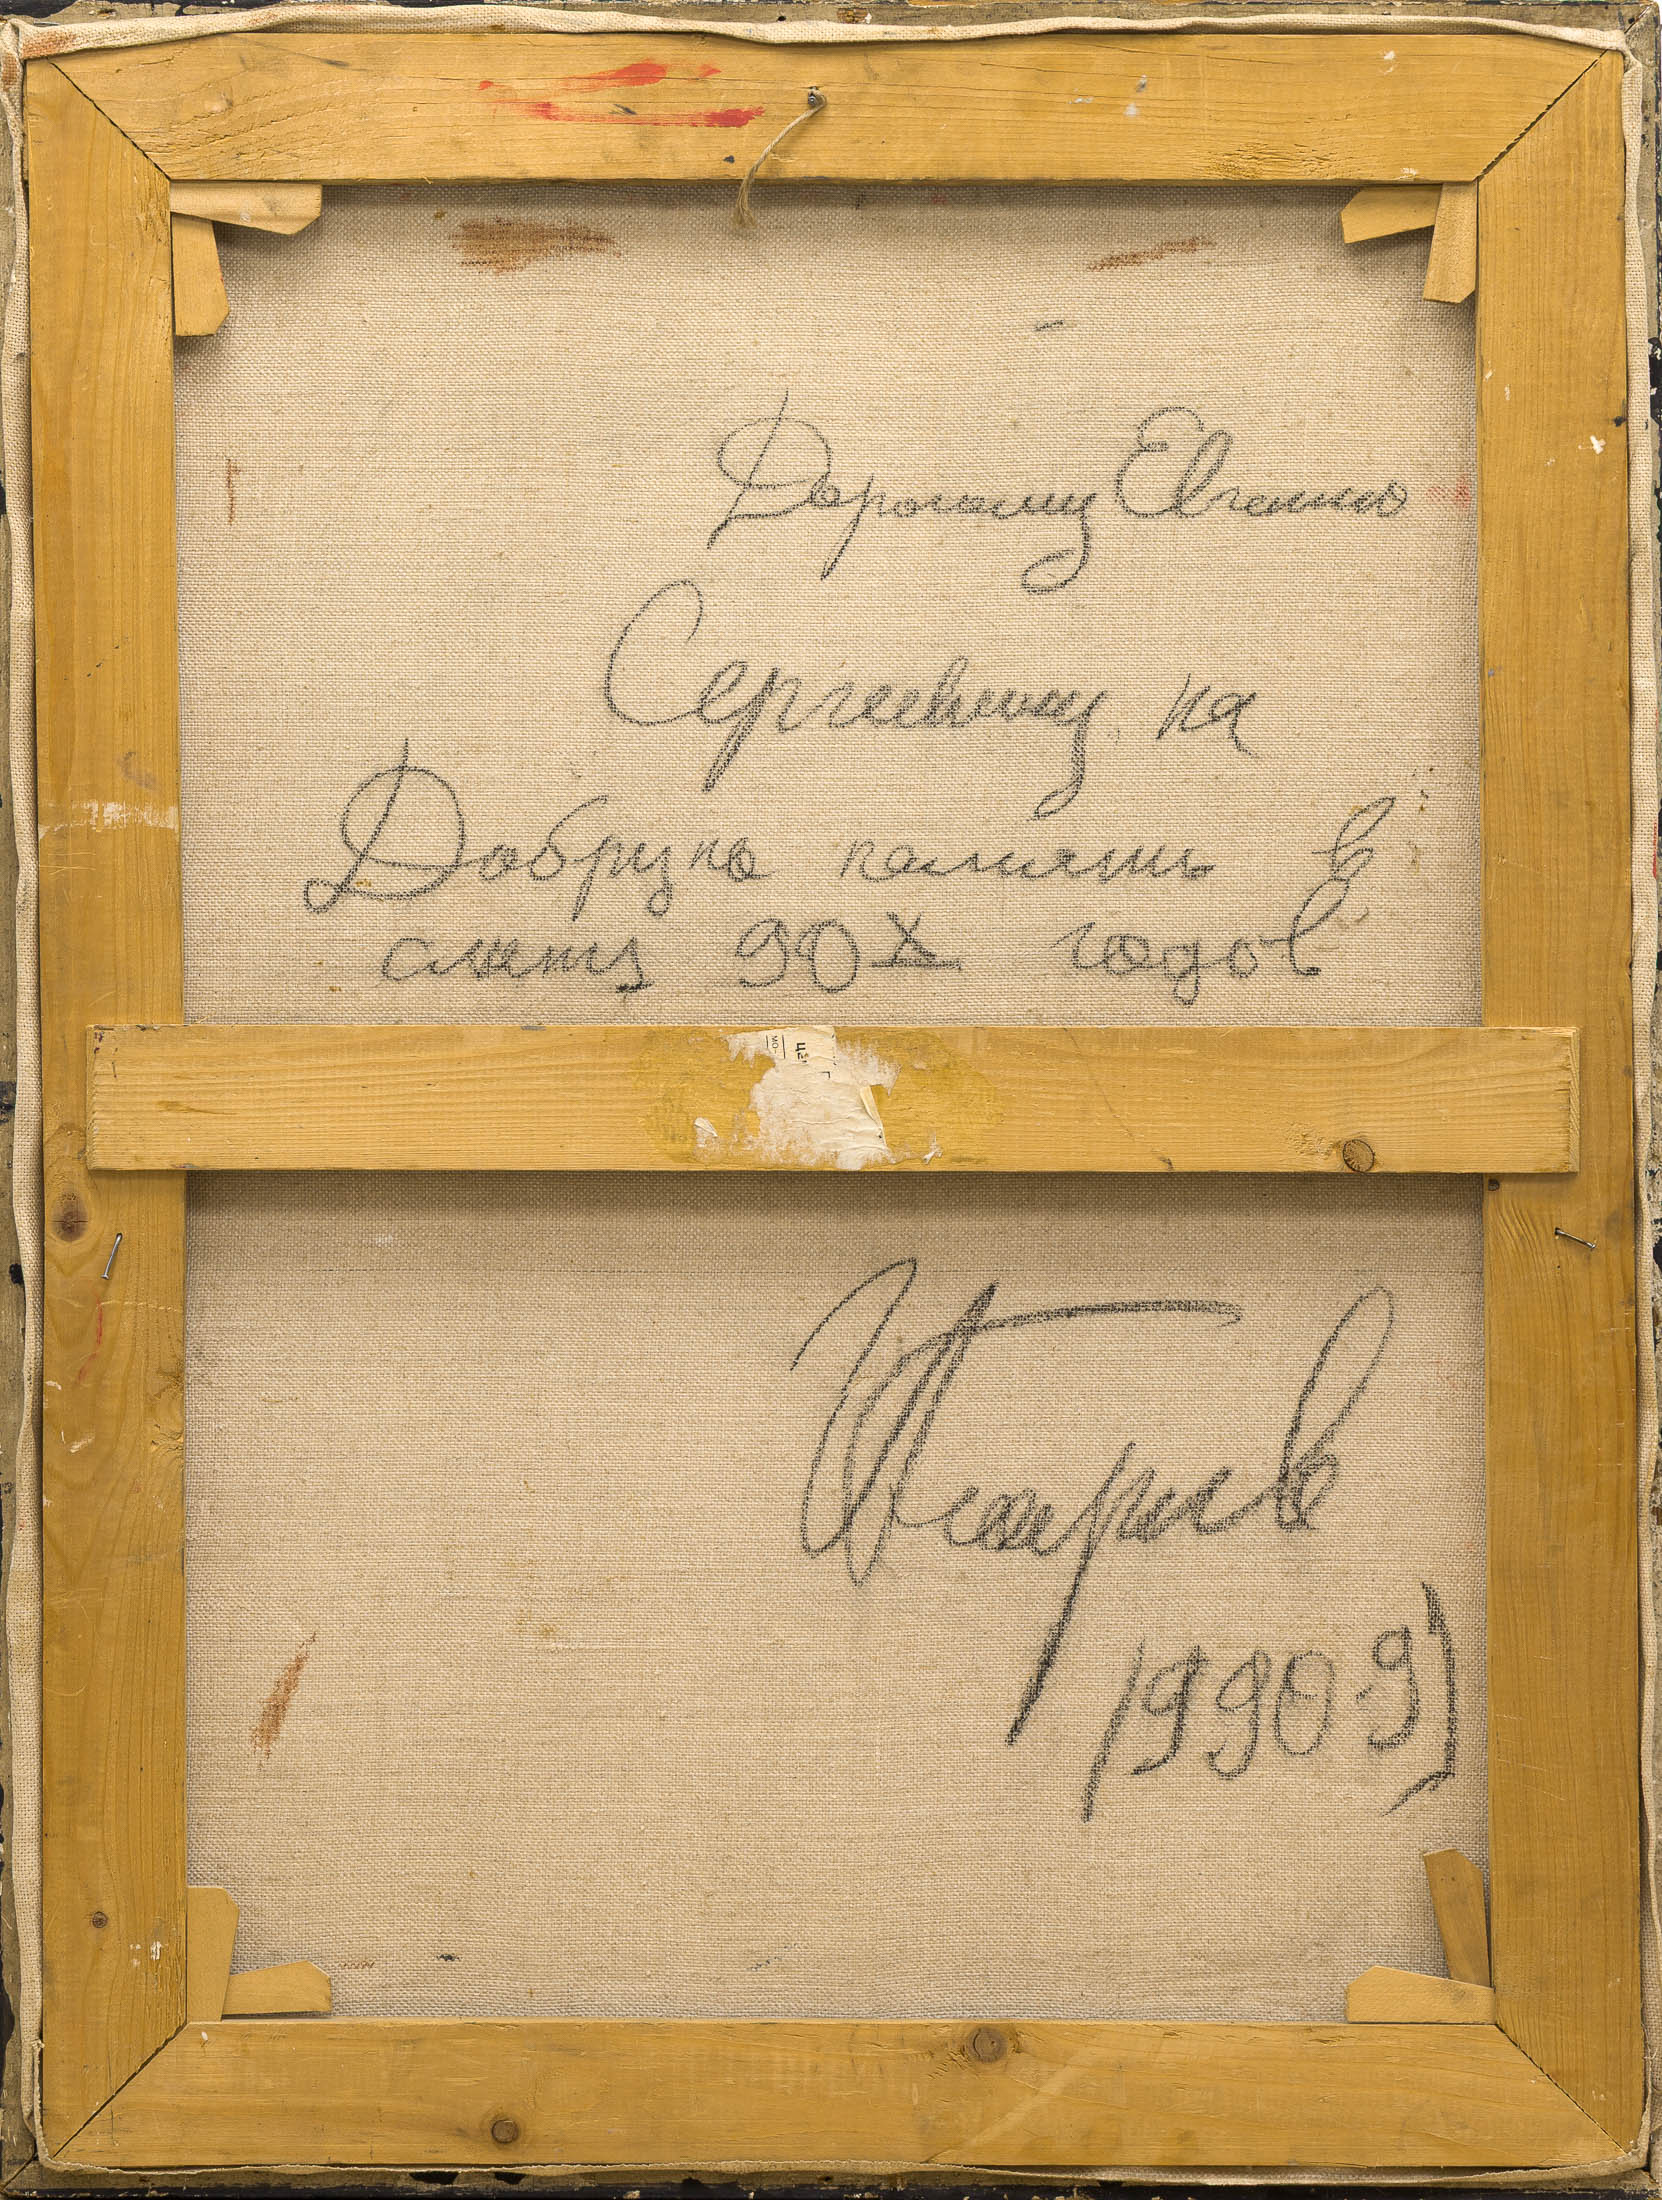 Дорогому Евгению
Сергеевичу на
Добрую память в
смету 90х годов
МО-
42
1990 г)